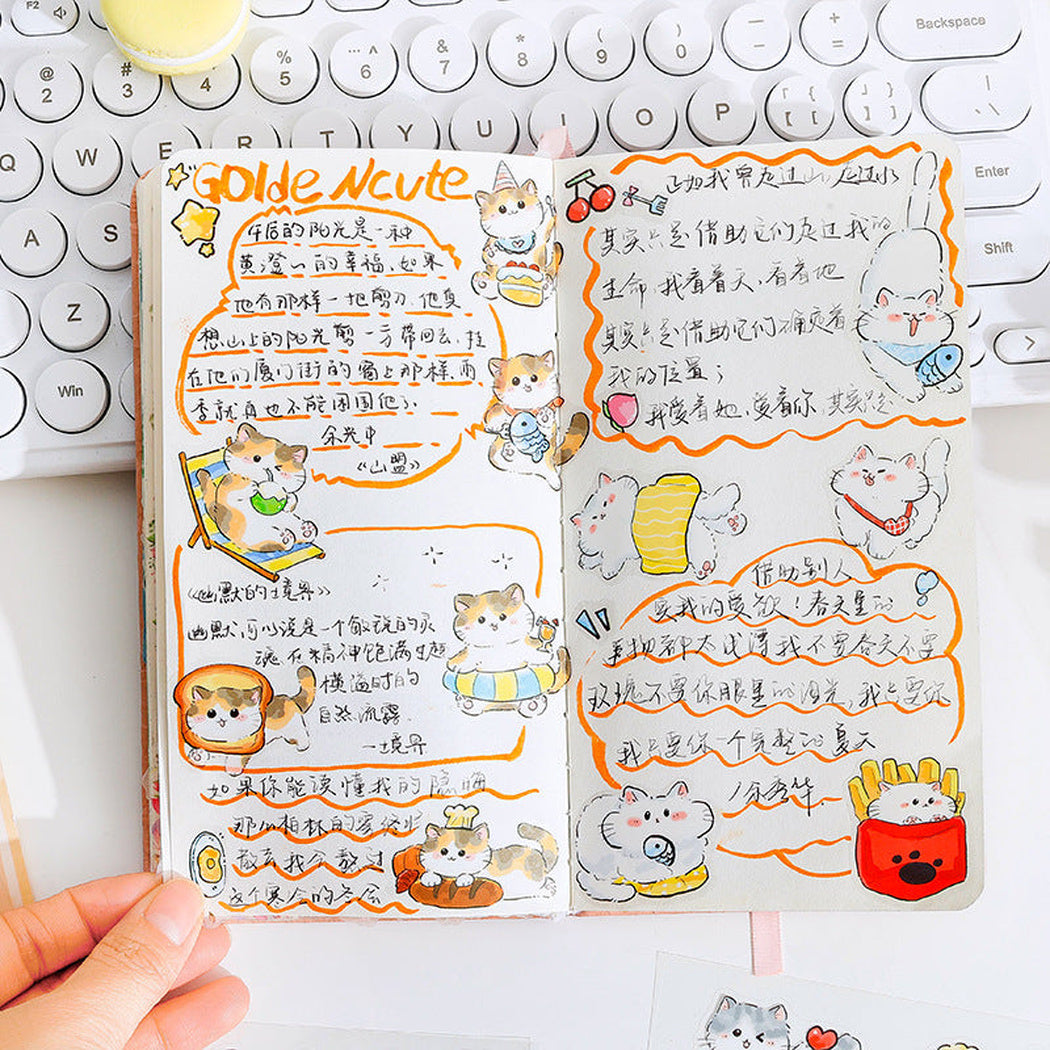 F2
@ 2
# 3
4
% 5
… ^ 6
& 7
* 8
( 9
) 0
—
+ =
Backspace
Q
W
E
T
Y
U
I
O
P
「 [ {
」 ] }
| \
A
S
Enter
Z
Shift
Win
GOlde Ncute
午后的阳光是一种
黄澄澄的幸福、如果
他有那样一把剪刀、他真
想山上的阳光剪一方带回去、挂
在他们厦门街的窗上那样、雨
季就再也不能围困他了
余光中
《山盟》
《幽默的境界》
幽默,可以说是一个敏锐的灵
魂、在精神饱满生趣
横溢时的
自然流露.
—境界
如果你能读懂我的隐晦
那么柏林的
我会熬过
这个寒冷的冬
正如我曾走过山,走过水
其实只是借助它们走过我的
生命,我看着天,看着地
其实只是借助它们确定着
我的位置;
我爱着她,爱着你,其实只是
借助别人
实我的爱欲!春天里的
事物都太浅薄我不要春天不要
玫瑰不要你眼里的泪光,我只要你
我只要你一个完整的夏天
/余秀华.